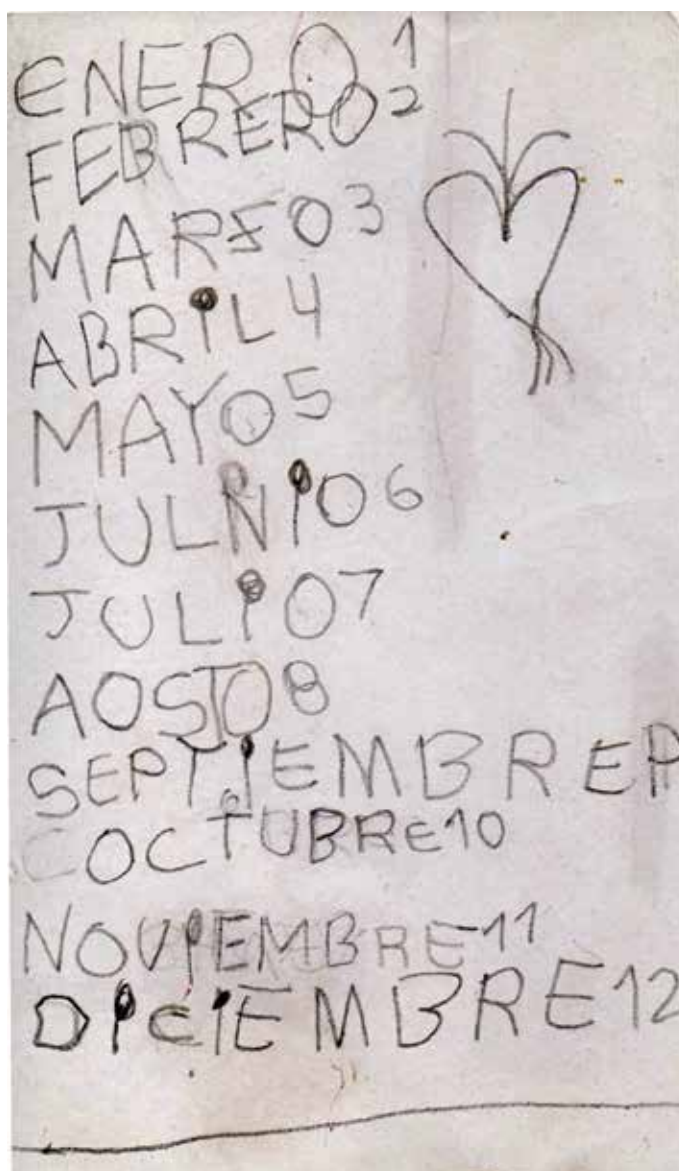 eNERO 1
FEBRERO 2
MARZO 3
ABRiL 4
MAYO 5
JULNiO 6
JULiO 7
AOSTO 8
SEPTiEMBRE P
COCTUBRE 10
NOViEMBRE 11
DiCiEMBRE 12